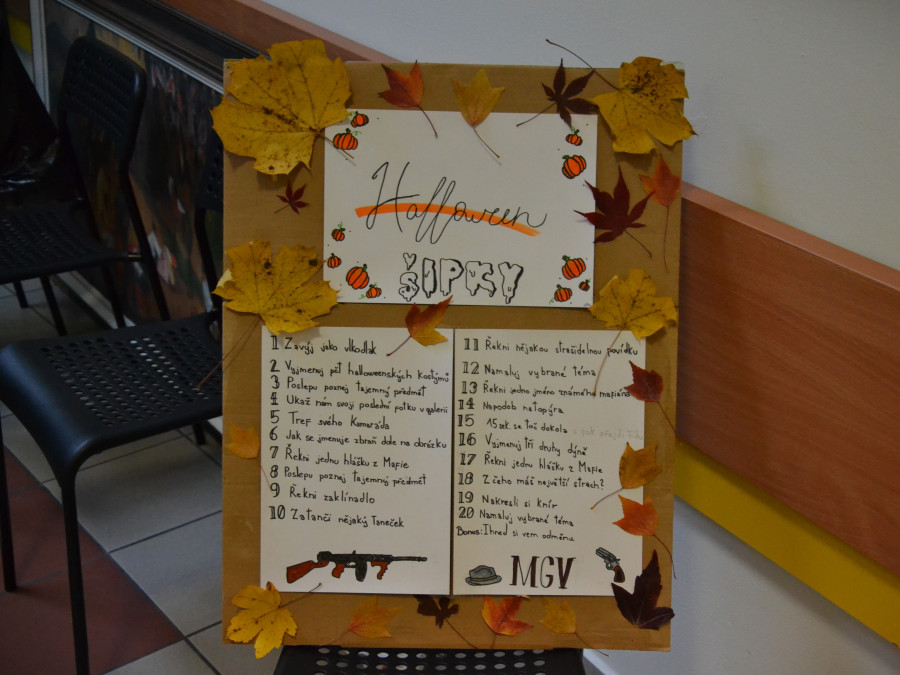 Halloween
ŠIPKY
1 Zavyj jako vlkodlak
2 Vyjmenuj pět halloweenských kostýmů
3 Poslepu poznej tajemný předmět
4 Ukaž nám svoji poslední fotku v galerii
5 Tref svého kamaráda
6 Jak se jmenuje zbraň dole na obrázku
7 Řekni jednu hlášku z Mafie
8 Poslepu poznej tajemný předmět
9 Řekni zaklínadlo
10 Zatanči nějaký Taneček
11 Řekni nějakou strašidelnou povídku
12 Namaluj vybrané téma
13 Řekni jedno jméno známého mafiána
14 Napodob netopýra
15 15 sek. se toč dokola
16 Vyjmenuj tři druhy dýně
17 Řekni jednu hlášku z Mafie
18 Z čeho máš největší strach?
19 Nakresli si knír
20 Namaluj vybrané téma
Bonus: Ihned si vem odměnu
MGV